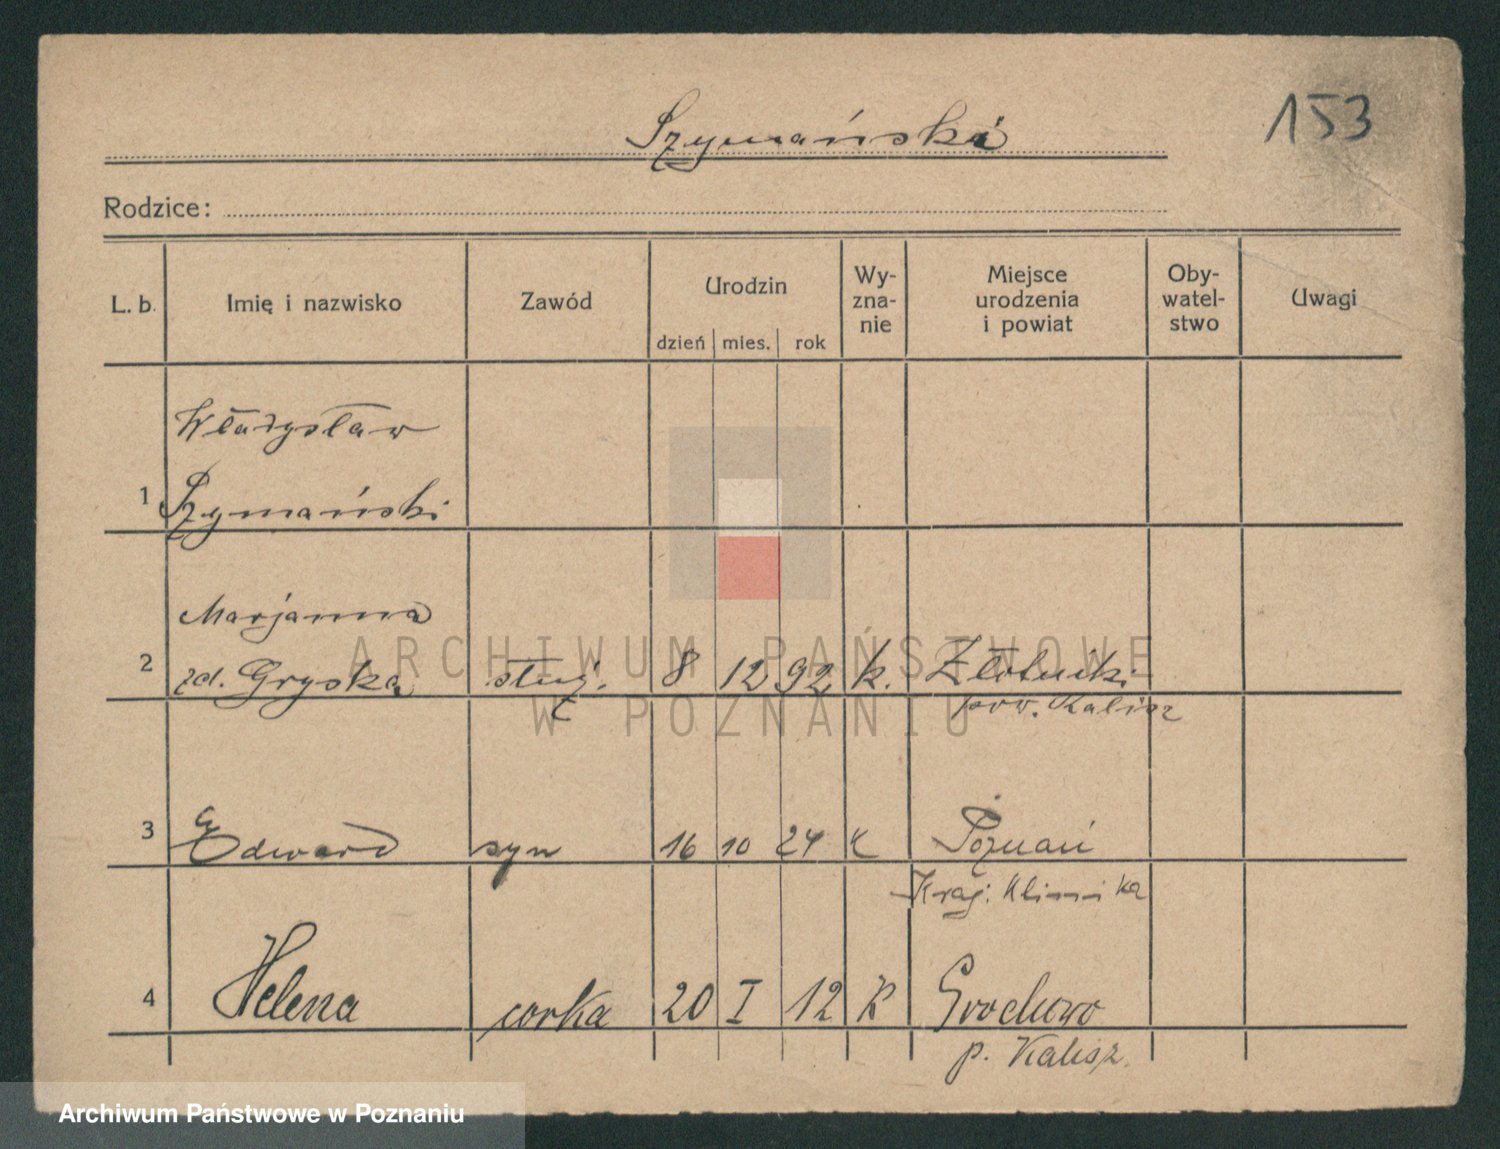 Szymański
153
Rodzice:
L. b. Imię i nazwisko Zawód Urodzin dzień mies. rok Wy-zna-nie Miejsce urodzenia i powiat Oby-watel-stwo Uwagi
Władysław
1 Szymański
Marjanna
2 zd. Gryska służ. 8 12 92 k. Złotniki
pow. Kalisz
3 Edward syn 16 10 24 K Poznań
Kraj. Klinika
4 Helena córka 20 I 12 K Grochowo
p. Kalisz.
ARCHIWUM PAŃSTWOWE
W POZNANIU
Archiwum Państwowe w Poznaniu